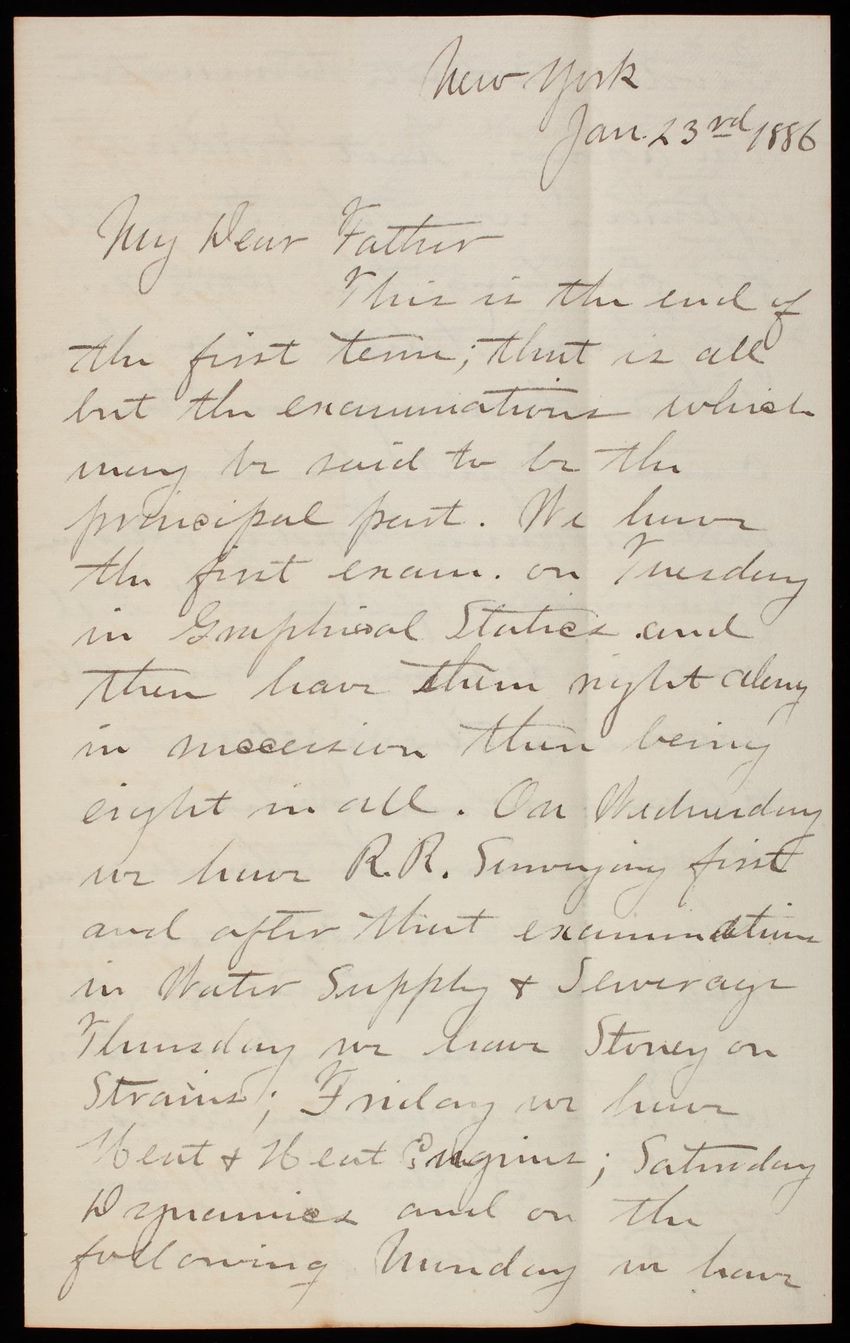 New York
Jan. 23rd 1886
My Dear Father
This is the end of
the first term; that is all
but the examinations which
may be said to be the
principal part. We have
the first exam. on Tuesday
in Graphical Statics and
then have them right along
in succession there being
eight in all. On Wednesday
we have R.R. Surveying first
and after that examination
in Water Supply & Sewerage
Thursday we have Stoney on
Strains; Friday we have
Heat & Heat Engines; Saturday
Dynamics and on the
following Monday we have